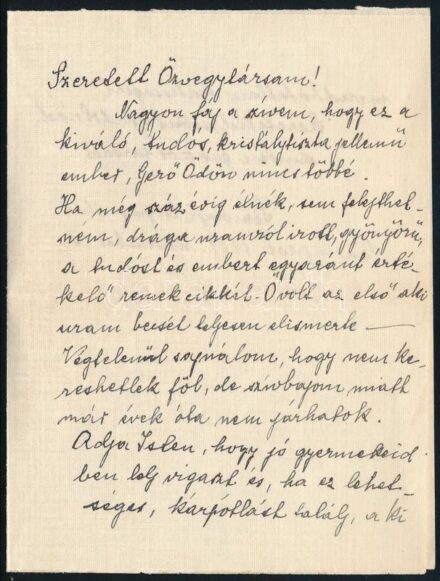 Szeretett Özvegytársam!
Nagyon fáj a szívem, hogy ez a
kiváló, tudós, kristálytiszta jellemű
ember, Gerő Ödön nincs többé.
Ha még száz évig élnék, sem felejthet-
ném, drága uramról írott, gyönyörű,
a tudóst és embert egyaránt érté-
kelő remek cikkit. Ő volt az első aki
uram becsét teljesen elismerte —
Végtelenül sajnálom, hogy nem ke-
reshetlek föl, de szívbajom miatt
már évek óta nem járhatok.
Adja Isten, hogy jó gyermekeid-
ben lelj vigaszt és, ha ez lehet-
séges, kárpótlást találj, a ki